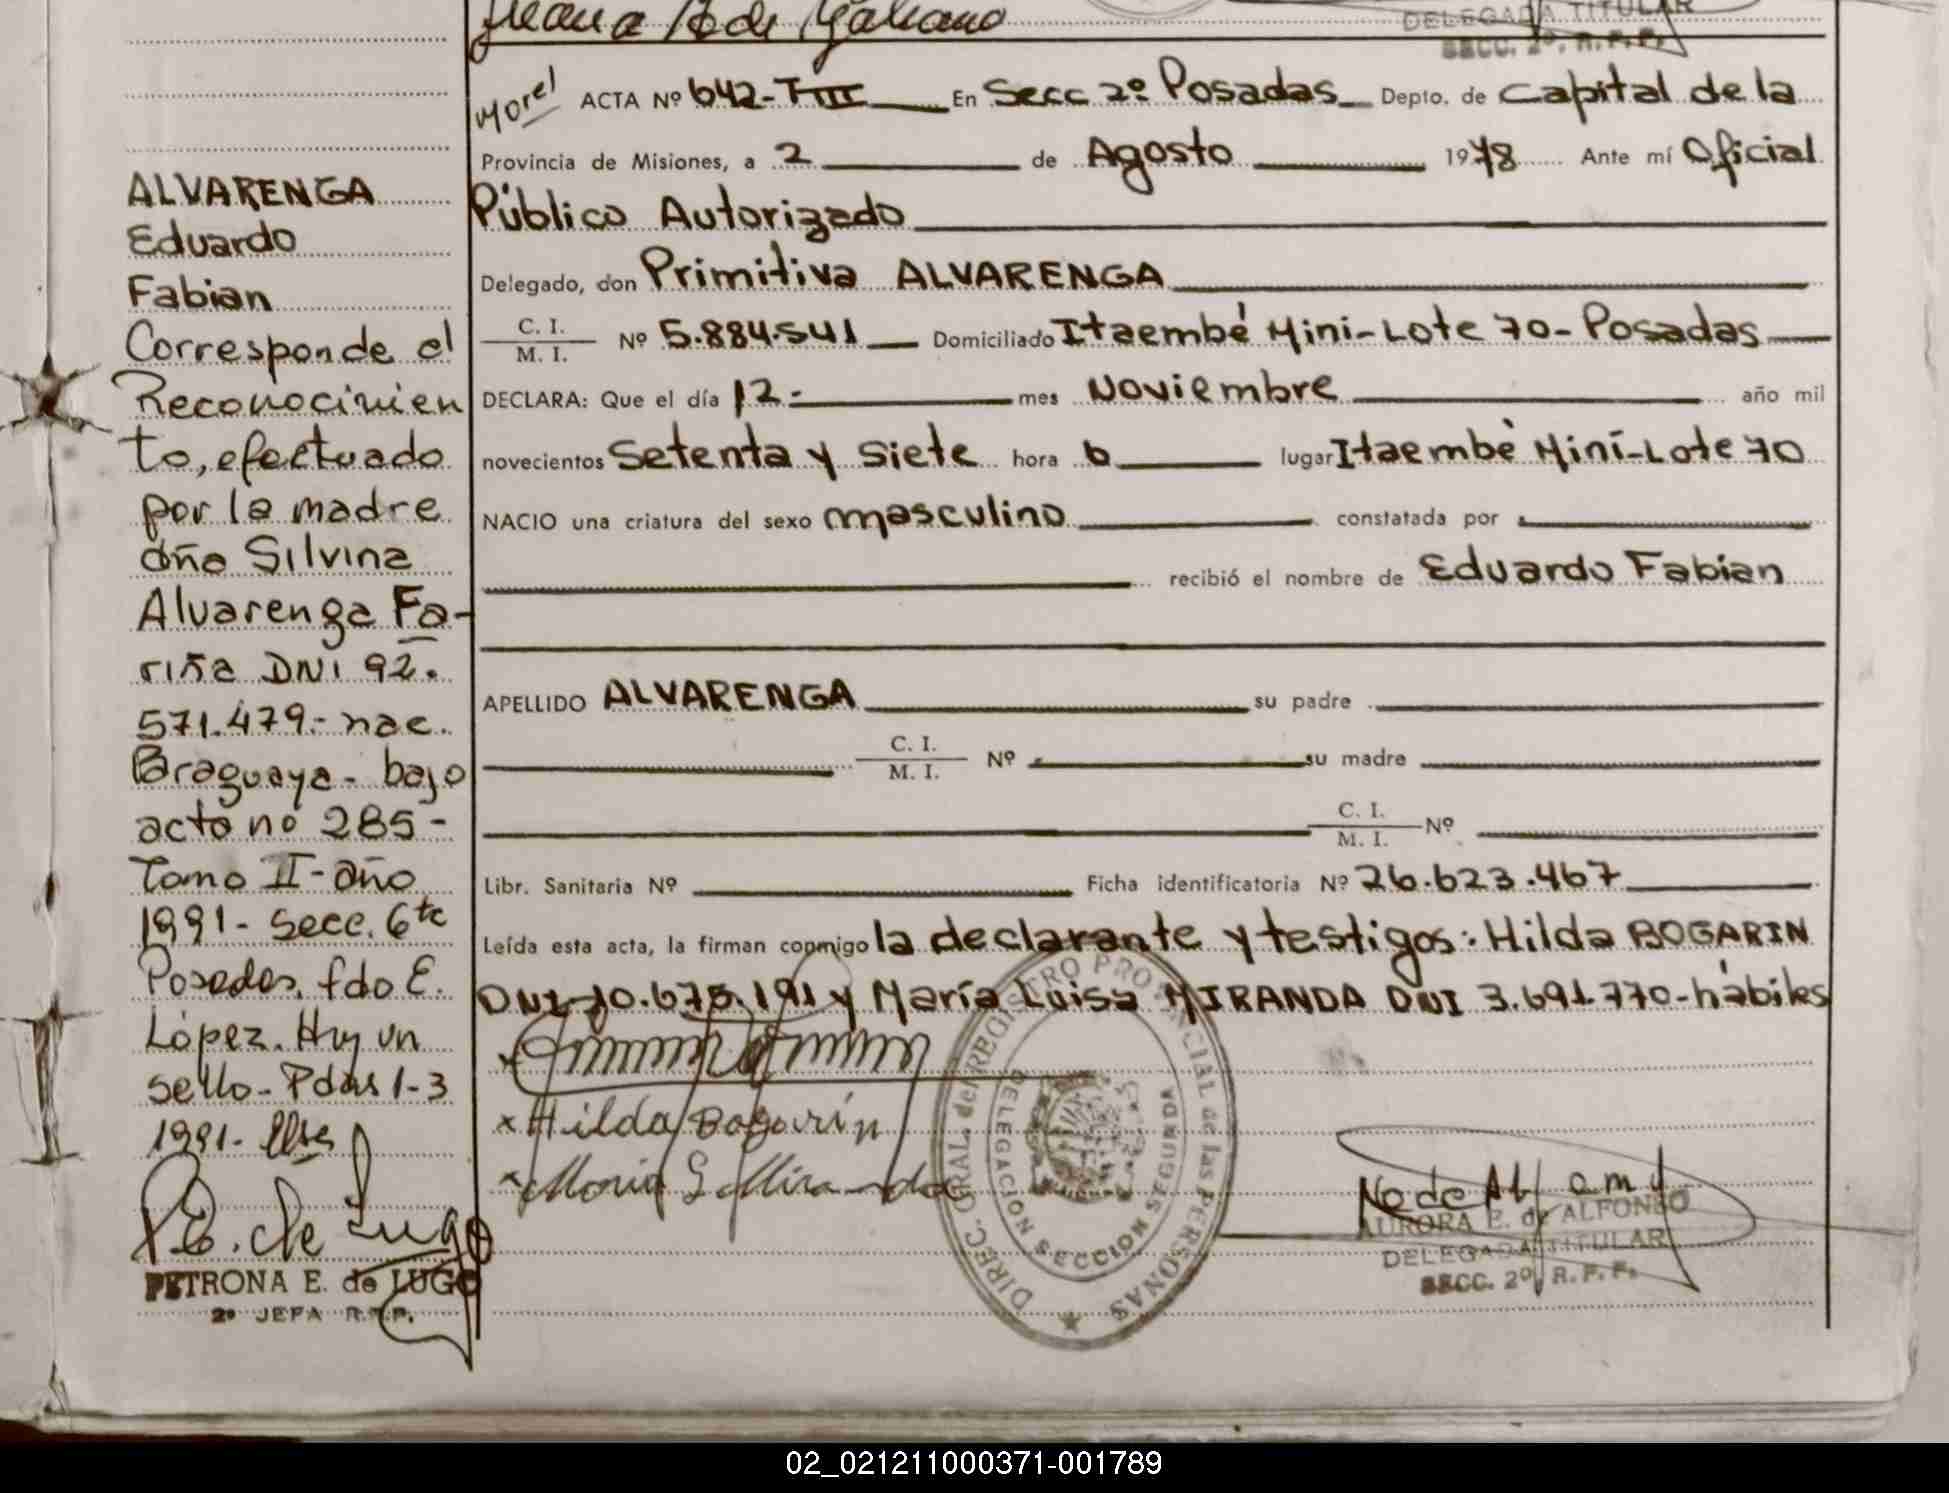 Juana A de Galeano
DELEGADA TITULAR
SECC. 2º. R.P.P.
ALVARENGA
Eduardo
Fabian
Corresponde el
Reconocimien
to, efectuado
por la madre
dña Silvina
Alvarenga Fa-
riña DNI 92.
571.479.- nac.
Paraguaya - bajo
acta nº 285 -
Tomo II - año
1991 - secc. 6ta
Posadas. fdo E.
López. Hay un
sello - Pdas 1-3
1991.
P.E. de Lugo
PETRONA E. de LUGO
2º JEFA R.P.P.
Morel
ACTA Nº 642-T III En Secc 2º Posadas Depto. de Capital de la
Provincia de Misiones, a 2 de Agosto 1978 Ante mí Oficial
Público Autorizado
Delegado, don Primitiva ALVARENGA
C. I.
M. I. Nº 5.884.541 Domiciliado Itaembé Mini-Lote 70-Posadas
DECLARA: Que el día 12- mes Noviembre año mil
novecientos Setenta y Siete hora 6 lugar Itaembé Mini-Lote 70
NACIO una criatura del sexo masculino constatada por
recibió el nombre de Eduardo Fabian
APELLIDO ALVARENGA su padre
C. I.
M. I. Nº su madre
C. I.
M. I. Nº
Libr. Sanitaria Nº Ficha identificatoria Nº 26.623.467
Leída esta acta, la firman conmigo la declarante y testigos: Hilda BOGARIN
DNI 10.675.191 y María Luisa MIRANDA DNI 3.691.770-hábiles
x Hilda Bogarín
x Maria L Miranda
DIREC. GRAL. del REGISTRO PROVINCIAL de las PERSONAS
DELEGACION SECCION SEGUNDA
AURORA E. de ALFONSO
DELEGADA TITULAR
SECC. 2º R.P.P.
02_021211000371-001789